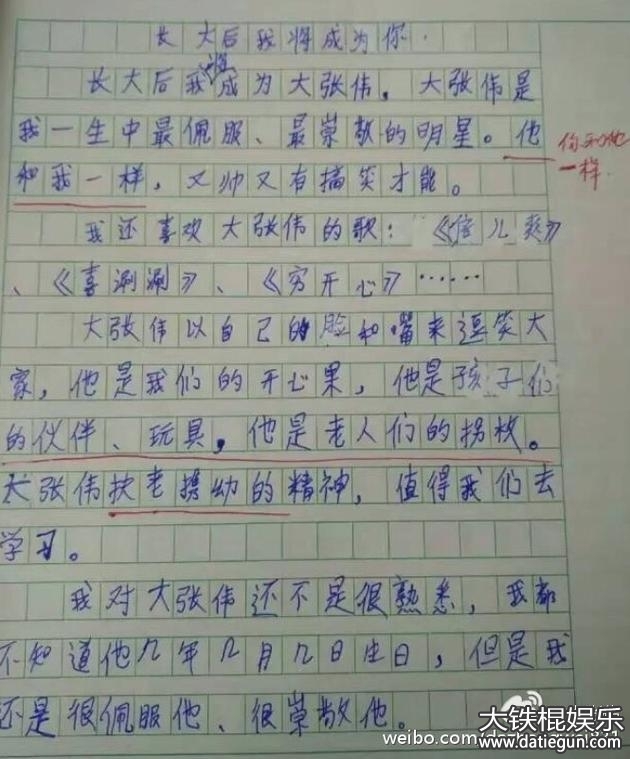 长大后我将成为你.
长大后我将成为大张伟。大张伟是
我一生中最佩服、最崇敬的明星。他
和我一样，又帅又有搞笑才能。
你和他
一样.
我还喜欢大张伟的歌：《倍儿爽》
、《喜涮涮》、《穷开心》……
大张伟以自己的脸和嘴来逗笑大
家，他是我们的开心果，他是孩子们
的伙伴、玩具，他是老人们的拐杖。
大张伟扶老携幼的精神，值得我们去
学习。
我对大张伟还不是很熟悉，我都
不知道他几年几月几日生日，但是我
还是很佩服他、很崇敬他。
大铁棍娱乐
weibo.com/
www.datiegun.com